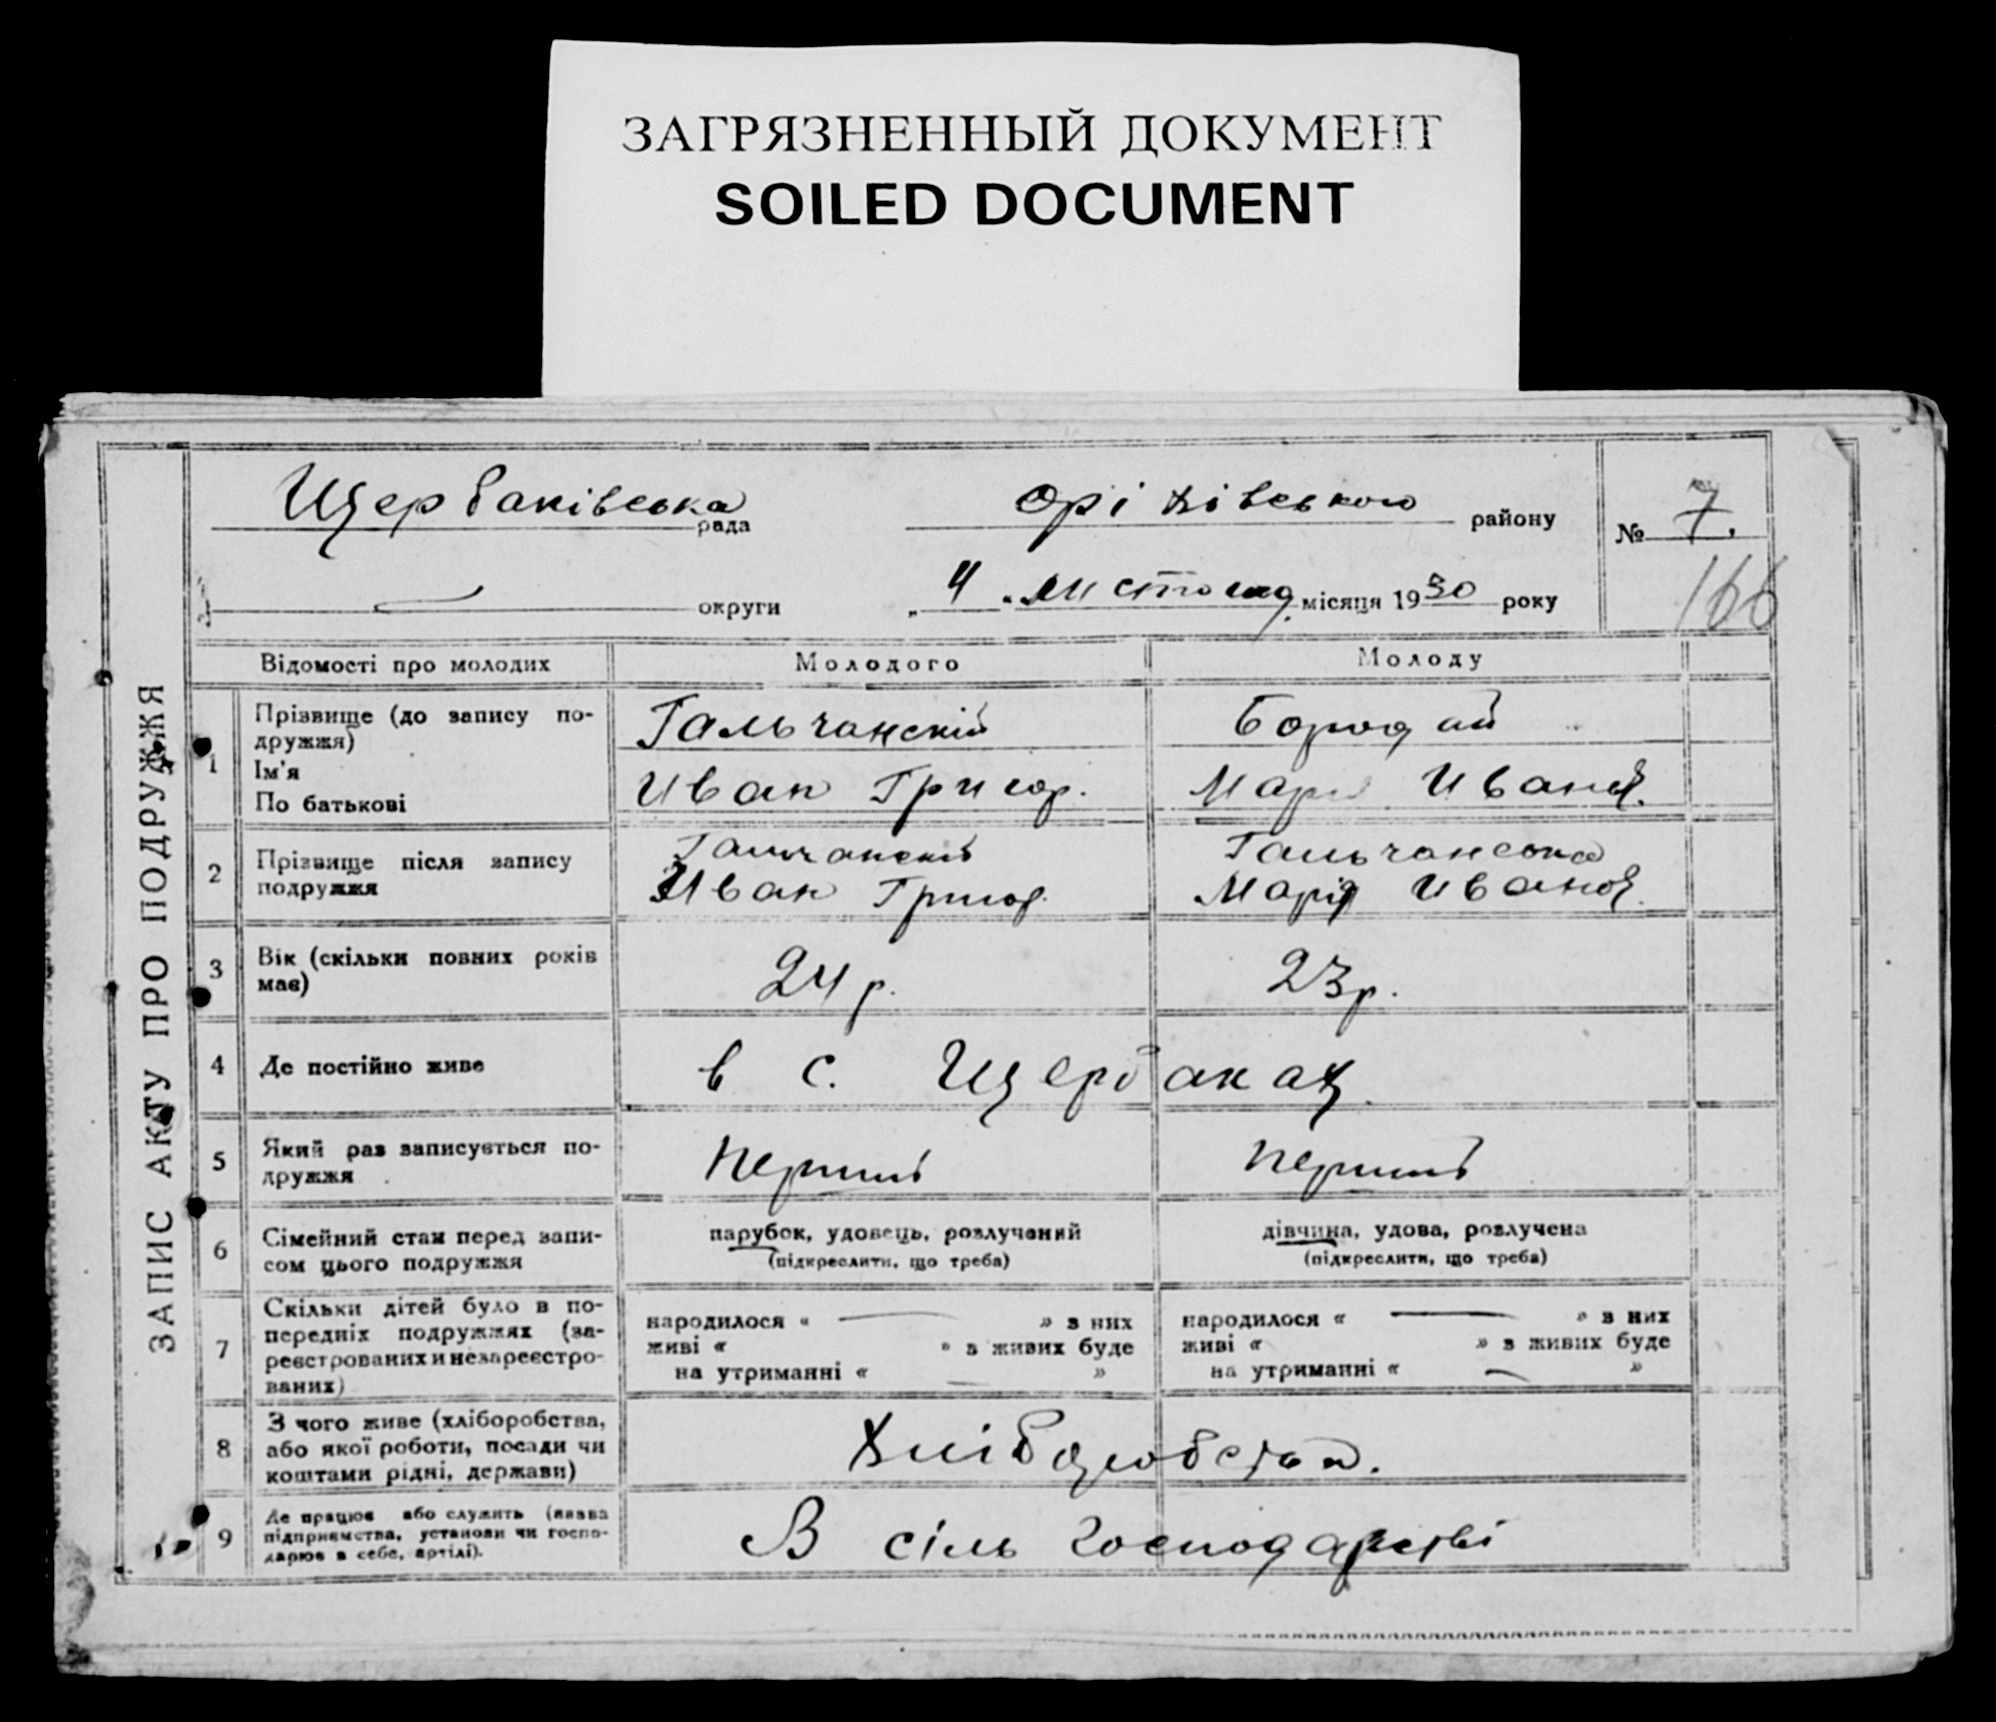 ЗАГРЯЗНЕННЫЙ ДОКУМЕНТ
SOILED DOCUMENT
ЗАПИС АКТУ ПРО ПОДРУЖЖЯ
Щербаківська рада
Оріхівського району
№ 7.
округи
„ 4 " листопад. місяця 1930 року
166
Відомості про молодих
Молодого
Молоду
1
Прізвище (до запису по-
дружжя)
Ім'я
По батькові
Гальчанский
Иван Григор.
Бородай
Мария Иванов.
2
Прізвище після запису
подружжя
Гальчанский
Иван Григор.
Гальчанська
Марія Иванов.
3
Вік (скільки повних років
має)
24 р.
23 р.
4
Де постійно живе
в с. Щербаках
5
Який раз записується по-
дружжя
перший
перший
6
Сімейний стан перед запи-
сом цього подружжя
парубок, удовець, розлучений
(підкреслити, що треба)
дівчина, удова, розлучена
(підкреслити, що треба)
7
Скільки дітей було в по-
передніх подружжях (за-
реєстрованих и незареєстро-
ваних)
народилося « — » з них
живі « » з живих буде
на утриманні « — »
народилося « — » з них
живі « » з живих буде
на утриманні « — »
8
З чого живе (хліборобства,
або якої роботи, посади чи
коштами рідні, держави)
Хліборобства.
9
Де працює або служить (назва
підприємства, установи чи госпо-
дарює в себе, артілі).
В сіль господарстві